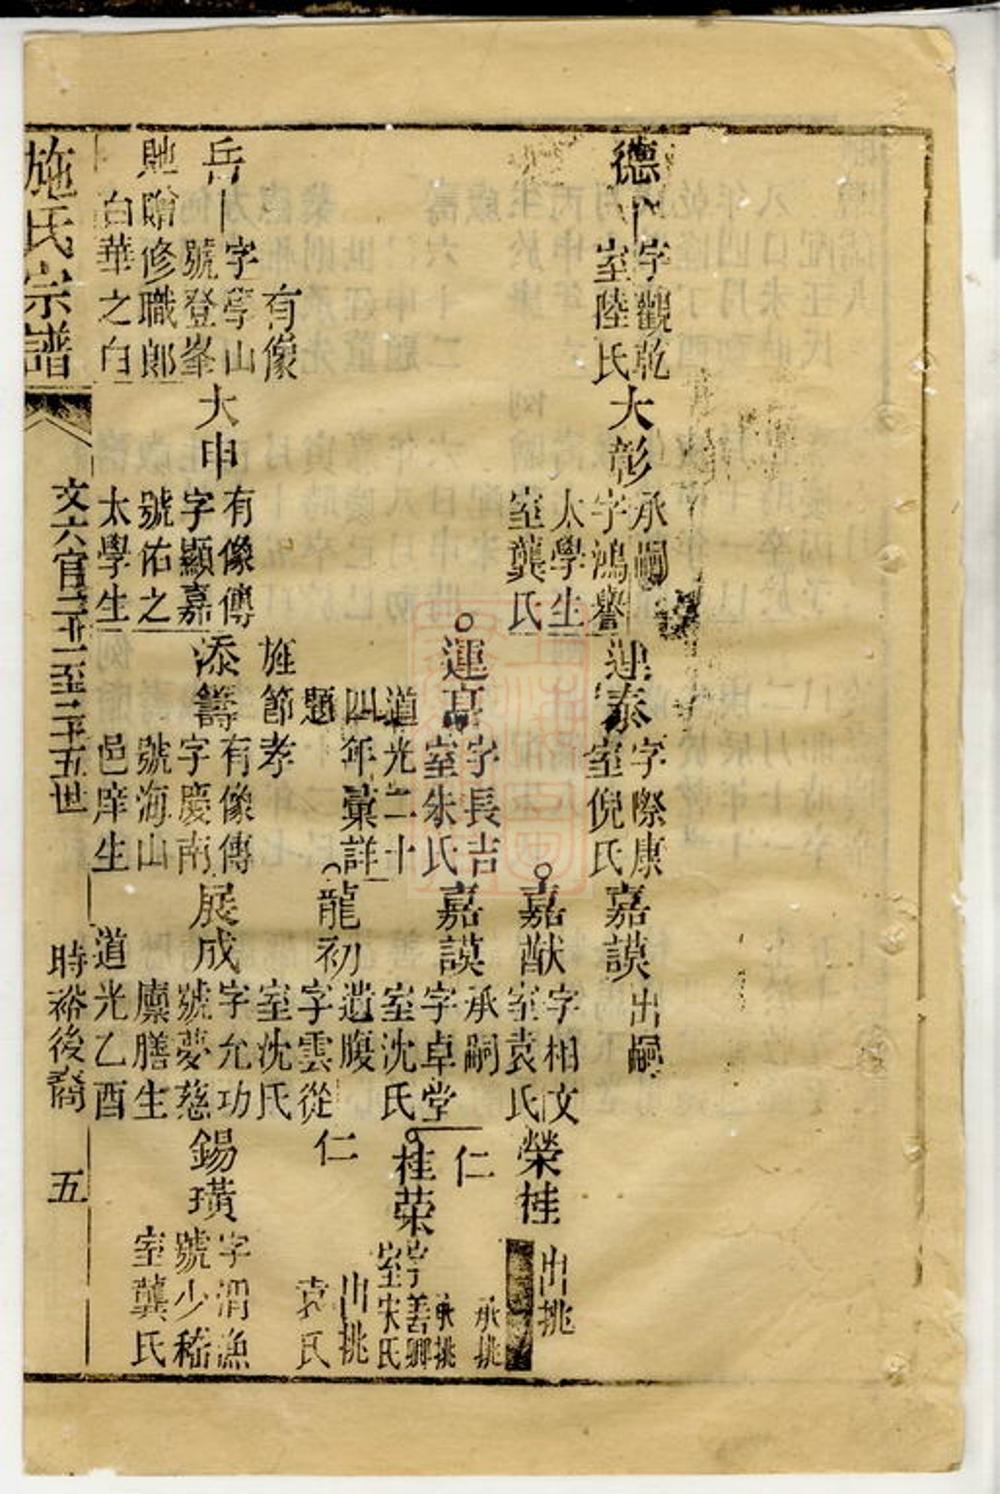 德
字觀乾
室陸氏
大彰
承嗣
字鴻譽
太學生
室龔氏
運泰
字際康
室倪氏
嘉謨
出嗣
嘉猷
字相文
室袁氏
榮桂
出挑
運亨
字長吉
室朱氏
嘉謨
承嗣
字卓堂
室沈氏
仁
承挑
桂荣
承挑
字善卿
室宋氏
旌節孝
道光二十
四年彙詳
題
龍初
遺腹
字雲從
室沈氏
仁
出挑
袁氏
岳
有像
字學山
號登峯
貤贈修職郎
白華之白
大申
有像傳
字顯嘉
號佑之
太學生
添籌
有像傳
字慶南
號海山
邑庠生
展成
字允功
號夢慈
廪膳生
道光乙酉
錫璜
字渭漁
號少嵇
室龔氏
施氏宗譜
文六官二十一至二十五世
時裕後裔
五